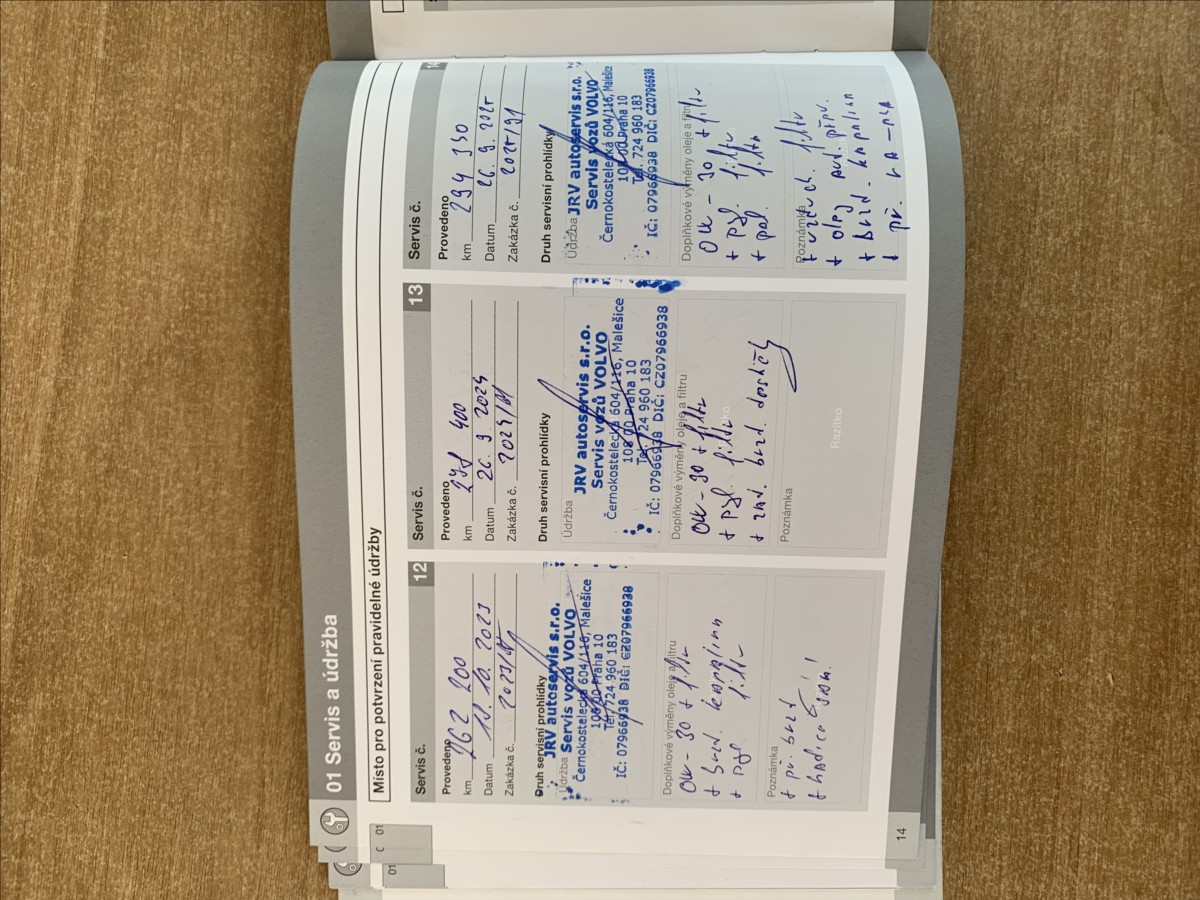 01 Servis a údržba
Místo pro potvrzení pravidelné údržby
Servis č. 12
Provedeno
km 262 200
Datum 10. 2023
Zakázka č.
Druh servisní prohlídky
Údržba
JRV autoservis s.r.o.
Servis vozů VOLVO
Černokostelecká 604/116, Malešice
108 00 Praha 10
Tel. 724 960 183
IČ: 07966938 DIČ: CZ07966938
Doplňkové výměny oleje a filtru
OW-30 + filtr
+ brzd. kapalinu
+ pyl. filtr
Poznámka
+ př. brzd
+ hadice
Servis č. 13
Provedeno
km 278 400
Datum 26. 9. 2024
Zakázka č.
Druh servisní prohlídky
Údržba
JRV autoservis s.r.o.
Servis vozů VOLVO
Černokostelecká 604/116, Malešice
108 00 Praha 10
Tel. 724 960 183
IČ: 07966938 DIČ: CZ07966938
Doplňkové výměny oleje a filtru
OW-30 + filtr
+ pyl. filtr
+ zad. brzd. destičky
Poznámka
Razítko
Servis č.
Provedeno
km 294 350
Datum 26. 9. 2025
Zakázka č.
Druh servisní prohlídky
Údržba
JRV autoservis s.r.o.
Servis vozů VOLVO
Černokostelecká 604/116, Malešice
108 00 Praha 10
Tel. 724 960 183
IČ: 07966938 DIČ: CZ07966938
Doplňkové výměny oleje a filtru
OW-30 + filtr
+ pyl. filtr
+ pal. filtr
Poznámka
+ vzduch. filtr
+ olej aut. přev.
+ brzd. kapalina
+ př.
14
C 01
01